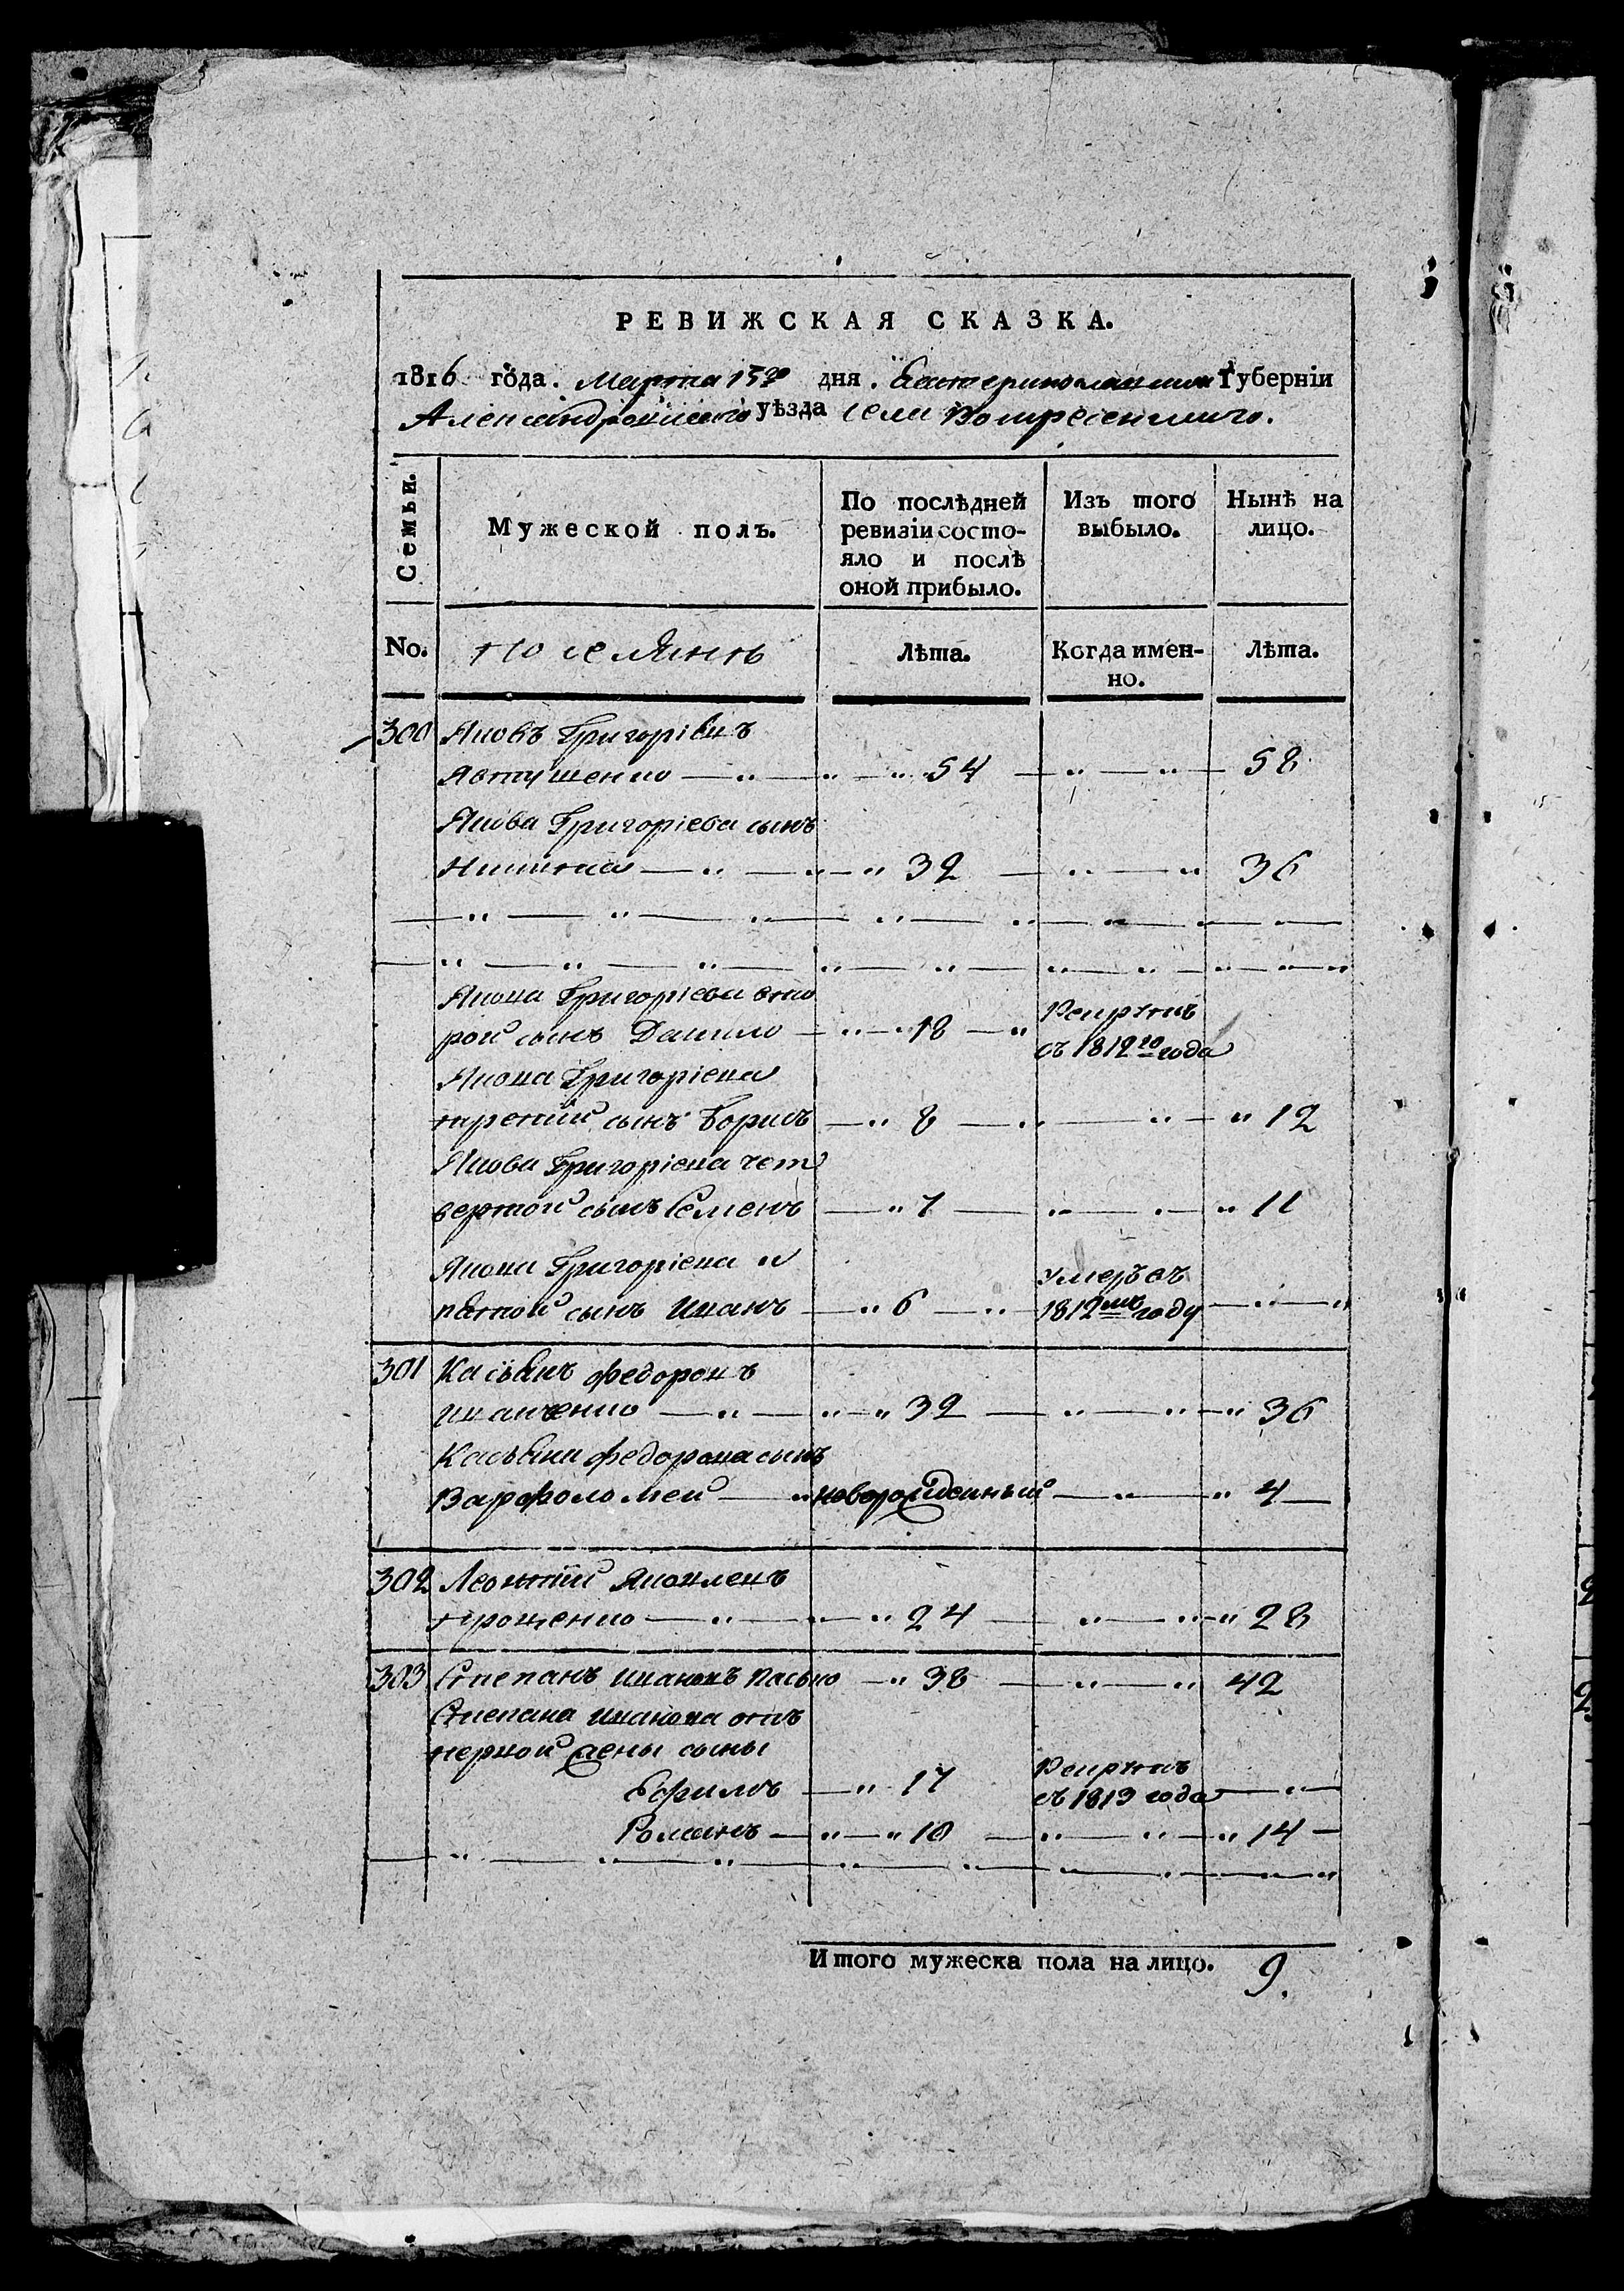 РЕВИЖСКАЯ СКАЗКА.
1816 года. Марта 15го дня. Екатеринославской Губерніи
Александровскаго уѣзда села Воскресенскаго.
Семьи.
Мужеской полъ.
По послѣдней ревизіи состо-
яло и послѣ
оной прибыло.
Изъ того
выбыло.
Нынѣ на
лицо.
No.
Поселянъ
Лѣта.
Когда имен-
но.
Лѣта.
300 Яковъ Григорієвъ
Явтушенко 54 58
Якова Григорієва сынъ
Никита 32 36
Якова Григорієва вто
рой сынъ Данило 18 Рекрутъ
съ 1812го года
Якова Григорієва
третій сынъ Борисъ 8 12
Якова Григорієва чет
вертой сынъ Семенъ 7 11
Якова Григорієва
пятой сынъ Иванъ 6 умеръ въ
1812мъ году
301 Касьянъ федоровъ
Иванченко 32 36
Касьяна федорова сынъ
Варфоломей новорожденный 4
302 Леонтій Яковлевъ
24 28
303 Степанъ Ивановъ Пасько 38 42
Степана Иванова отъ
первой жены сыны
Ефимъ 17 Рекрутъ
съ 1813 года
Романъ 10 14
Итого мужеска пола на лицо. 9.